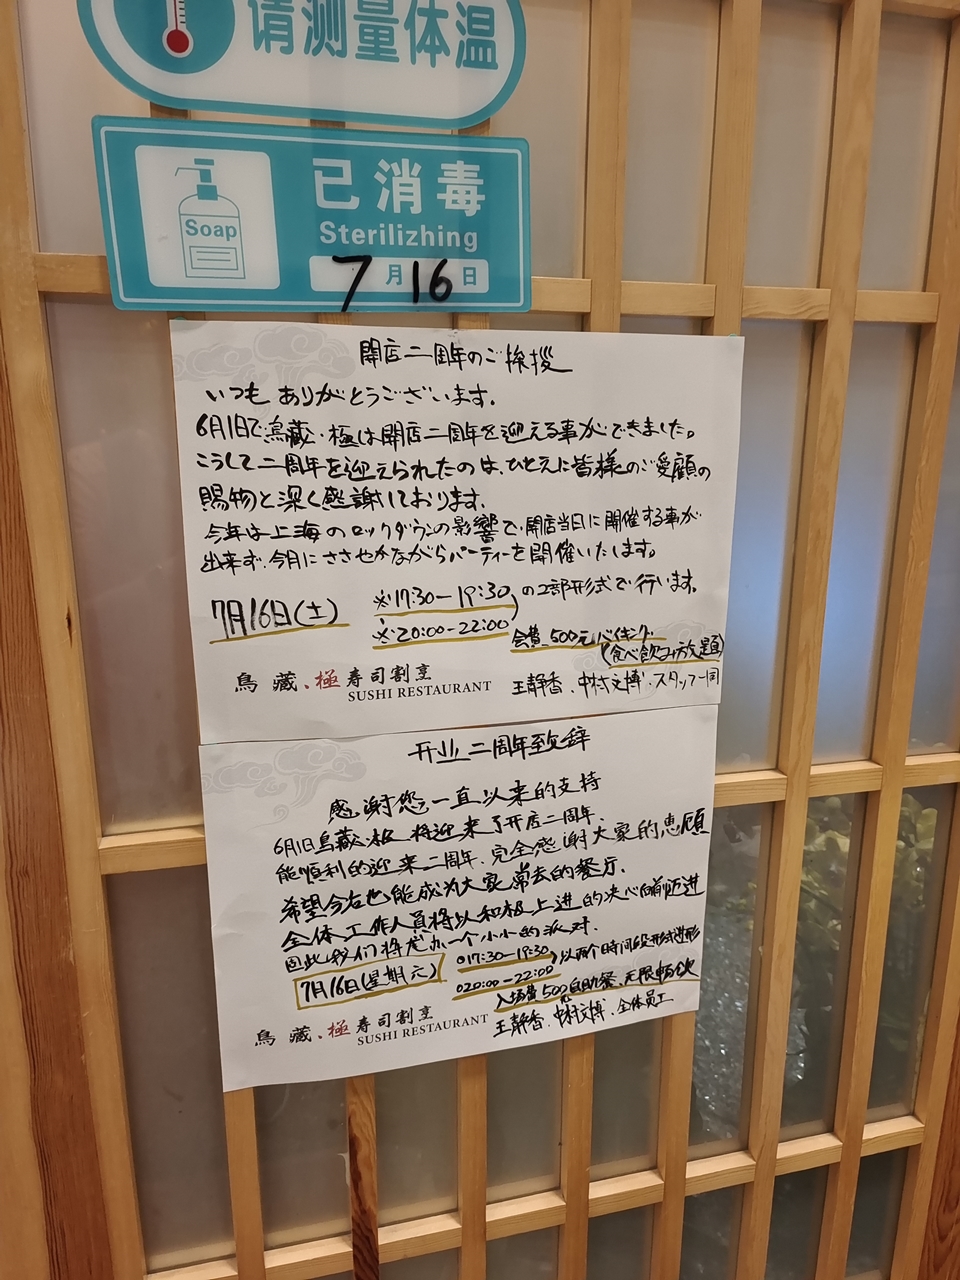 请测量体温
已消毒
Soap
Sterilizhing
7月16日
開店二周年のご挨拶
いつもありがとうございます。
6月1日で鳥藏・極は開店二周年を迎える事ができました。
こうして二周年を迎えられたのは、ひとえに皆様のご愛顧の
賜物と深く感謝しております。
今年は上海のロックダウンの影響で、開店当日に開催する事が
出来ず、今月にささやかながらパーティーを開催いたします。
7月16日(土) ※17:30-19:30 の2部形式で行います。
※20:00-22:00
会費500元バイキング
(食べ飲み放題)
鳥藏、極寿司割烹
SUSHI RESTAURANT
王静香、中村文博、スタッフ一同
开业二周年致辞
感谢您一直以来的支持
6月1日鳥藏・极 将迎来了开店二周年、
能順利的迎来二周年、完全感谢大家的恵顾
希望今后也能成为大家常去的餐厅.
全体工作人员将以积极上进的决心向前迈进
因此我们将举办一个小小的派对.
7月16日(星期六) 017:30-19:30 以两个时间段形式进行
020:00-22:00
入场费500元自助餐、无限畅饮
鳥藏、極寿司割烹
SUSHI RESTAURANT
王静香、中村文博、全体员工